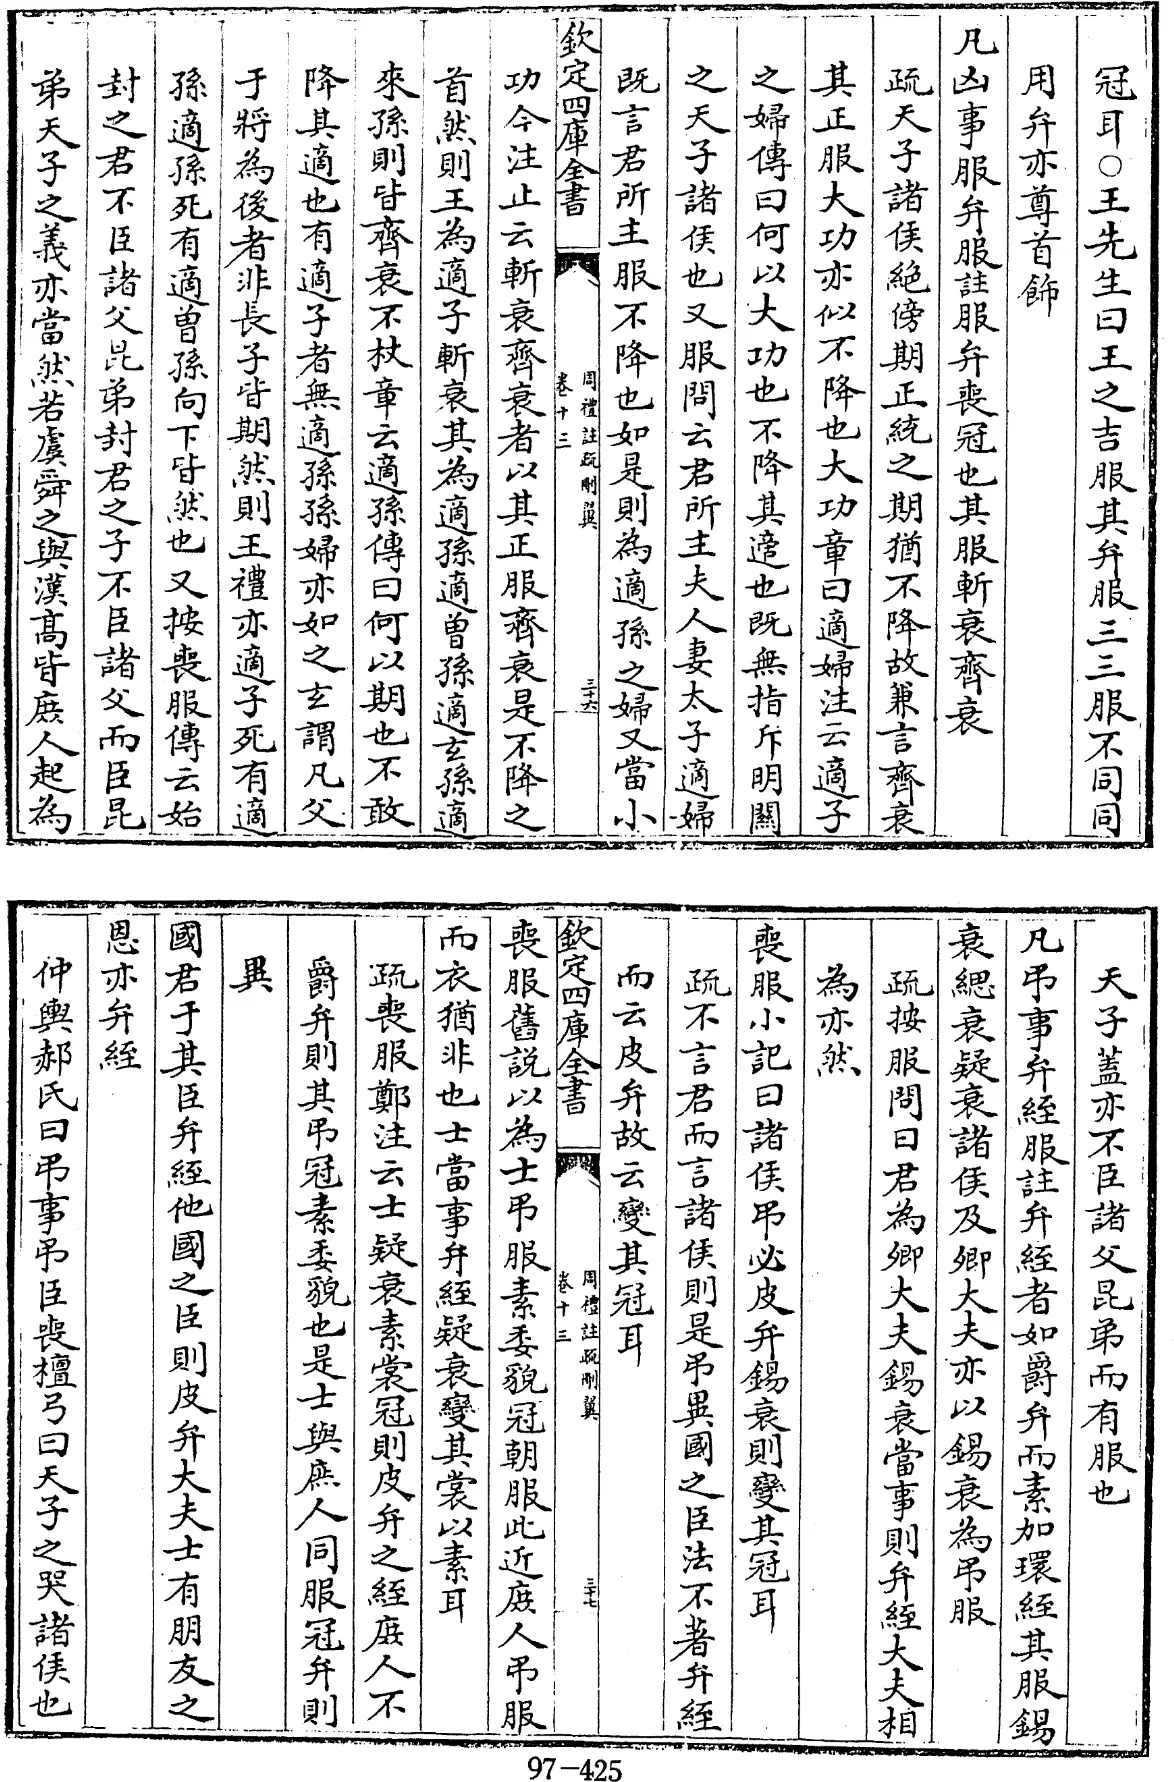 冠耳○王先生曰王之吉服其弁服三三服不同同
用弁亦尊首飾
凡凶事服弁服註服弁喪冠也其服斬衰齊衰
疏天子諸侯絶傍期正統之期猶不降故兼言齊衰
其正服大功亦似不降也大功章曰適婦注云適子
之婦傳曰何以大功也不降其適也既無指斥明關
之天子諸侯也又服問云君所主夫人妻太子適婦
既言君所主服不降也如是則為適孫之婦又當小
欽定四庫全書
周禮註疏刪翼
卷十三
三十六
功今注止云斬衰齊衰者以其正服齊衰是不降之
首然則王為適子斬衰其為適孫適曾孫適玄孫適
來孫則皆齊衰不杖章云適孫傳曰何以期也不敢
降其適也有適子者無適孫孫婦亦如之玄謂凡父
于將為後者非長子皆期然則王禮亦適子死有適
孫適孫死有適曾孫向下皆然也又按喪服傳云始
封之君不臣諸父昆弟封君之子不臣諸父而臣昆
弟天子之義亦當然若虞舜之與漢高皆庶人起為
天子蓋亦不臣諸父昆弟而有服也
凡弔事弁絰服註弁絰者如爵弁而素加環絰其服錫
衰緦衰疑衰諸侯及卿大夫亦以錫衰為弔服
疏按服問曰君為卿大夫錫衰當事則弁絰大夫相
為亦然
喪服小記曰諸侯弔必皮弁錫衰則變其冠耳
疏不言君而言諸侯則是弔異國之臣法不著弁絰
而云皮弁故云變其冠耳
欽定四庫全書
周禮註疏刪翼
卷十三
三十七
喪服舊說以為士弔服素委貌冠朝服此近庶人弔服
而衣猶非也士當事弁絰疑衰變其裳以素耳
疏喪服鄭注云士疑衰素裳冠則皮弁之絰庶人不
爵弁則其弔冠素委貌也是士與庶人同服冠弁則
異
國君于其臣弁絰他國之臣則皮弁大夫士有朋友之
恩亦弁絰
仲輿郝氏曰弔事弔臣喪檀弓曰天子之哭諸侯也
97-425